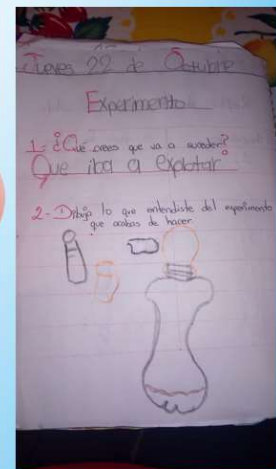 Jueves 22 de Octubre
Experimento
1-¿Qué crees que va a suceder?
Que iba a explotar
2-Dibuja lo que entendiste del experimento
que acabas de hacer